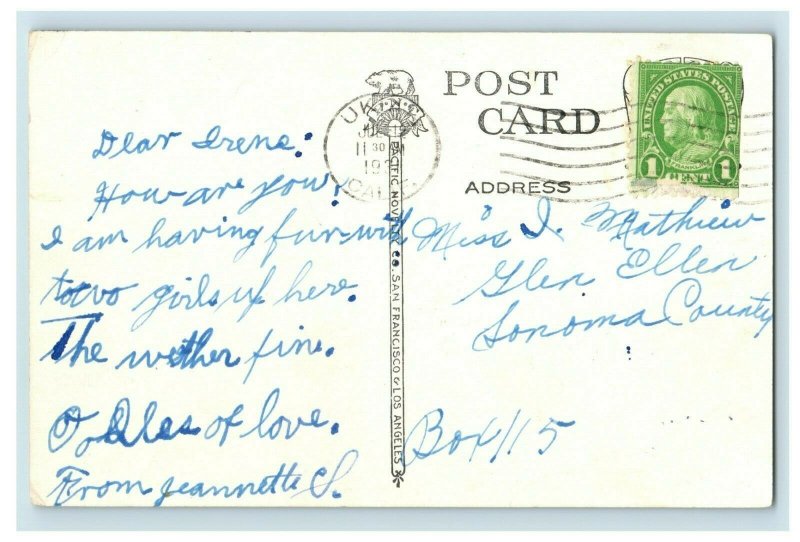 POST
CARD
ADDRESS
UNITED STATES POSTAGE
FRANKLIN
1 CENT 1
11 30
CALIF
PACIFIC NOVELTY CO. SAN FRANCISCO & LOS ANGELES
Dear Irene:
How are you?
I am having fun with
two girls up here.
The wether fine.
of love.
From Jeannette S.
Miss I. Mathieu
Glen Ellen
Sonoma County
Box 115